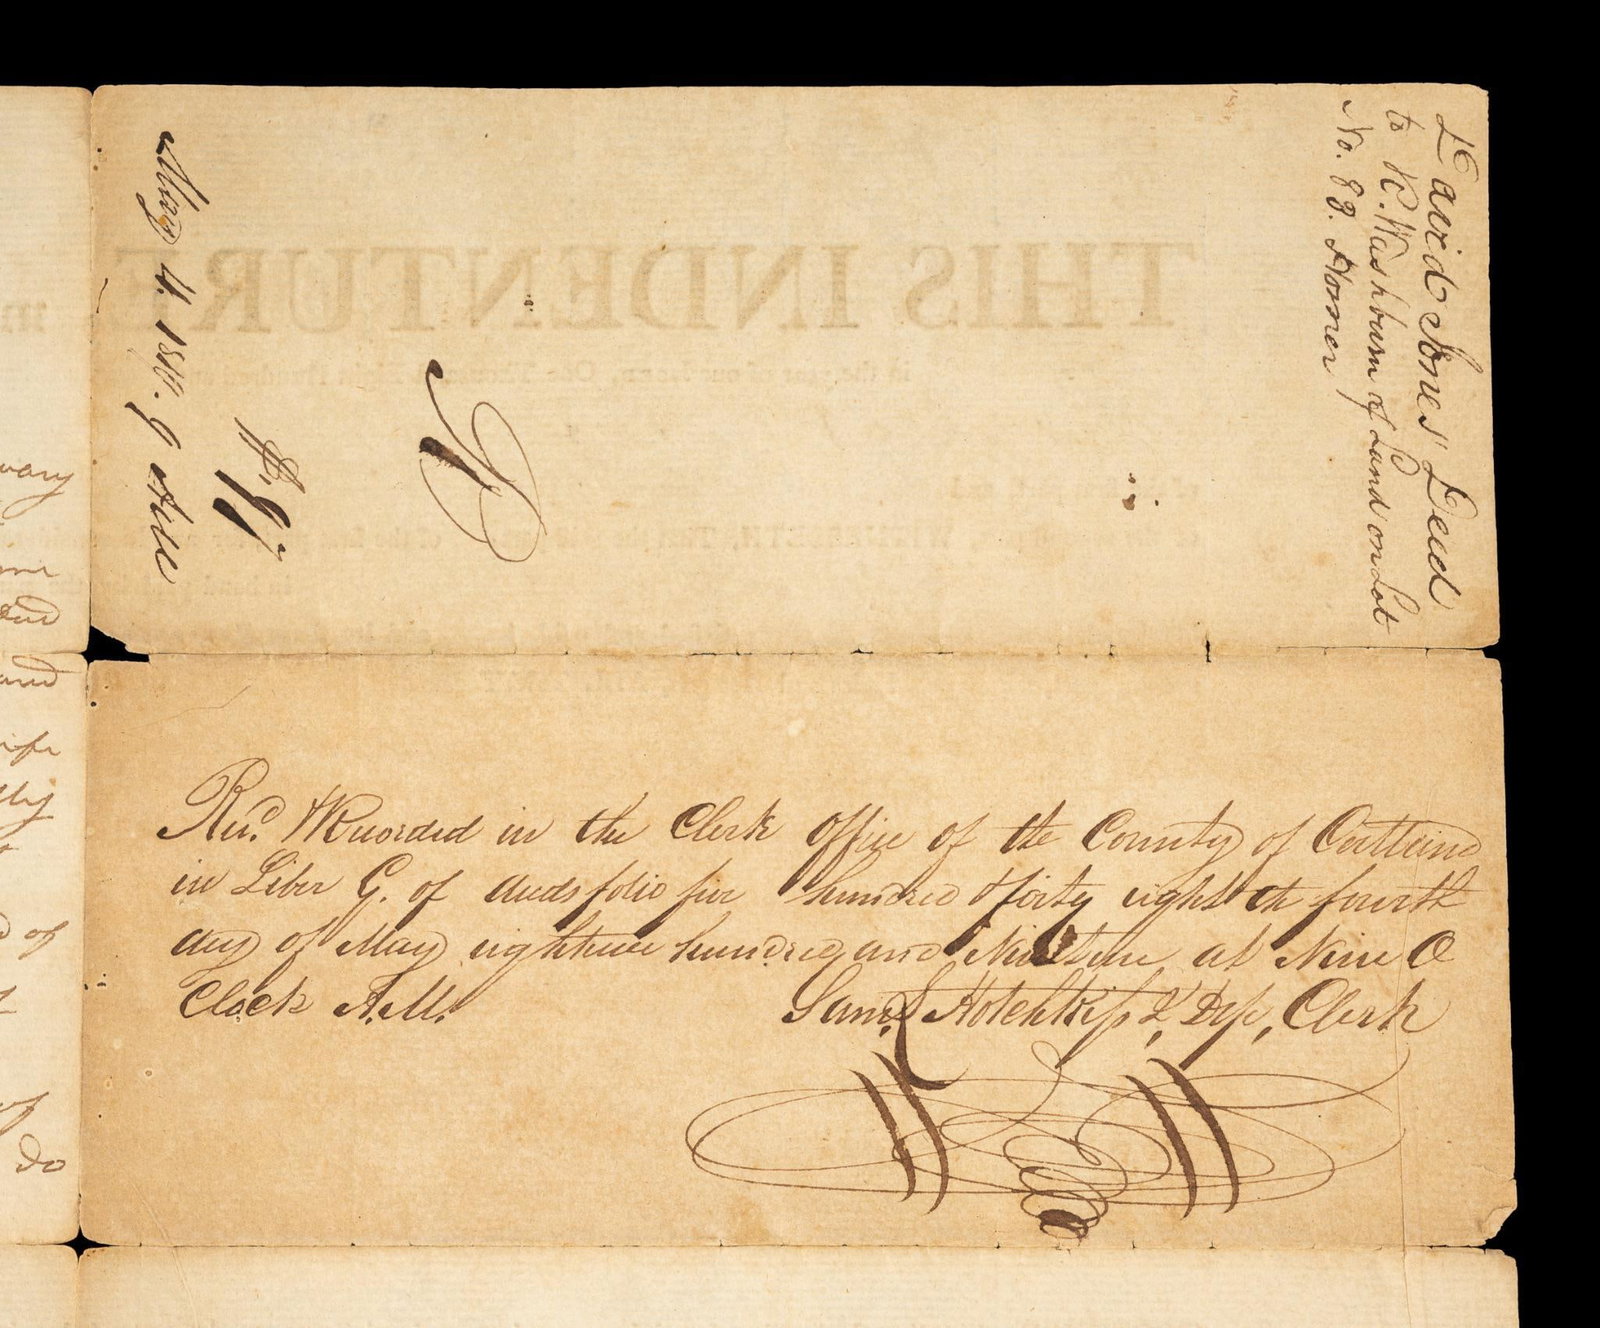 David Jones' Deed
to R. Washburn of Land on Lot
No. 83. Homer
THIS INDENTURE
May 4. 1819. 9 AM
Recd. & Recorded in the Clerk Office of the County of Cortland
in Liber G. of deeds folio five hundred & forty eight the fourth
day of May eighteen hundred and Nineteen at Nine O
Clock A.M.
Saml. Hotchkiss Jr. Dep, Clerk
vary
and
ife
of
of
do